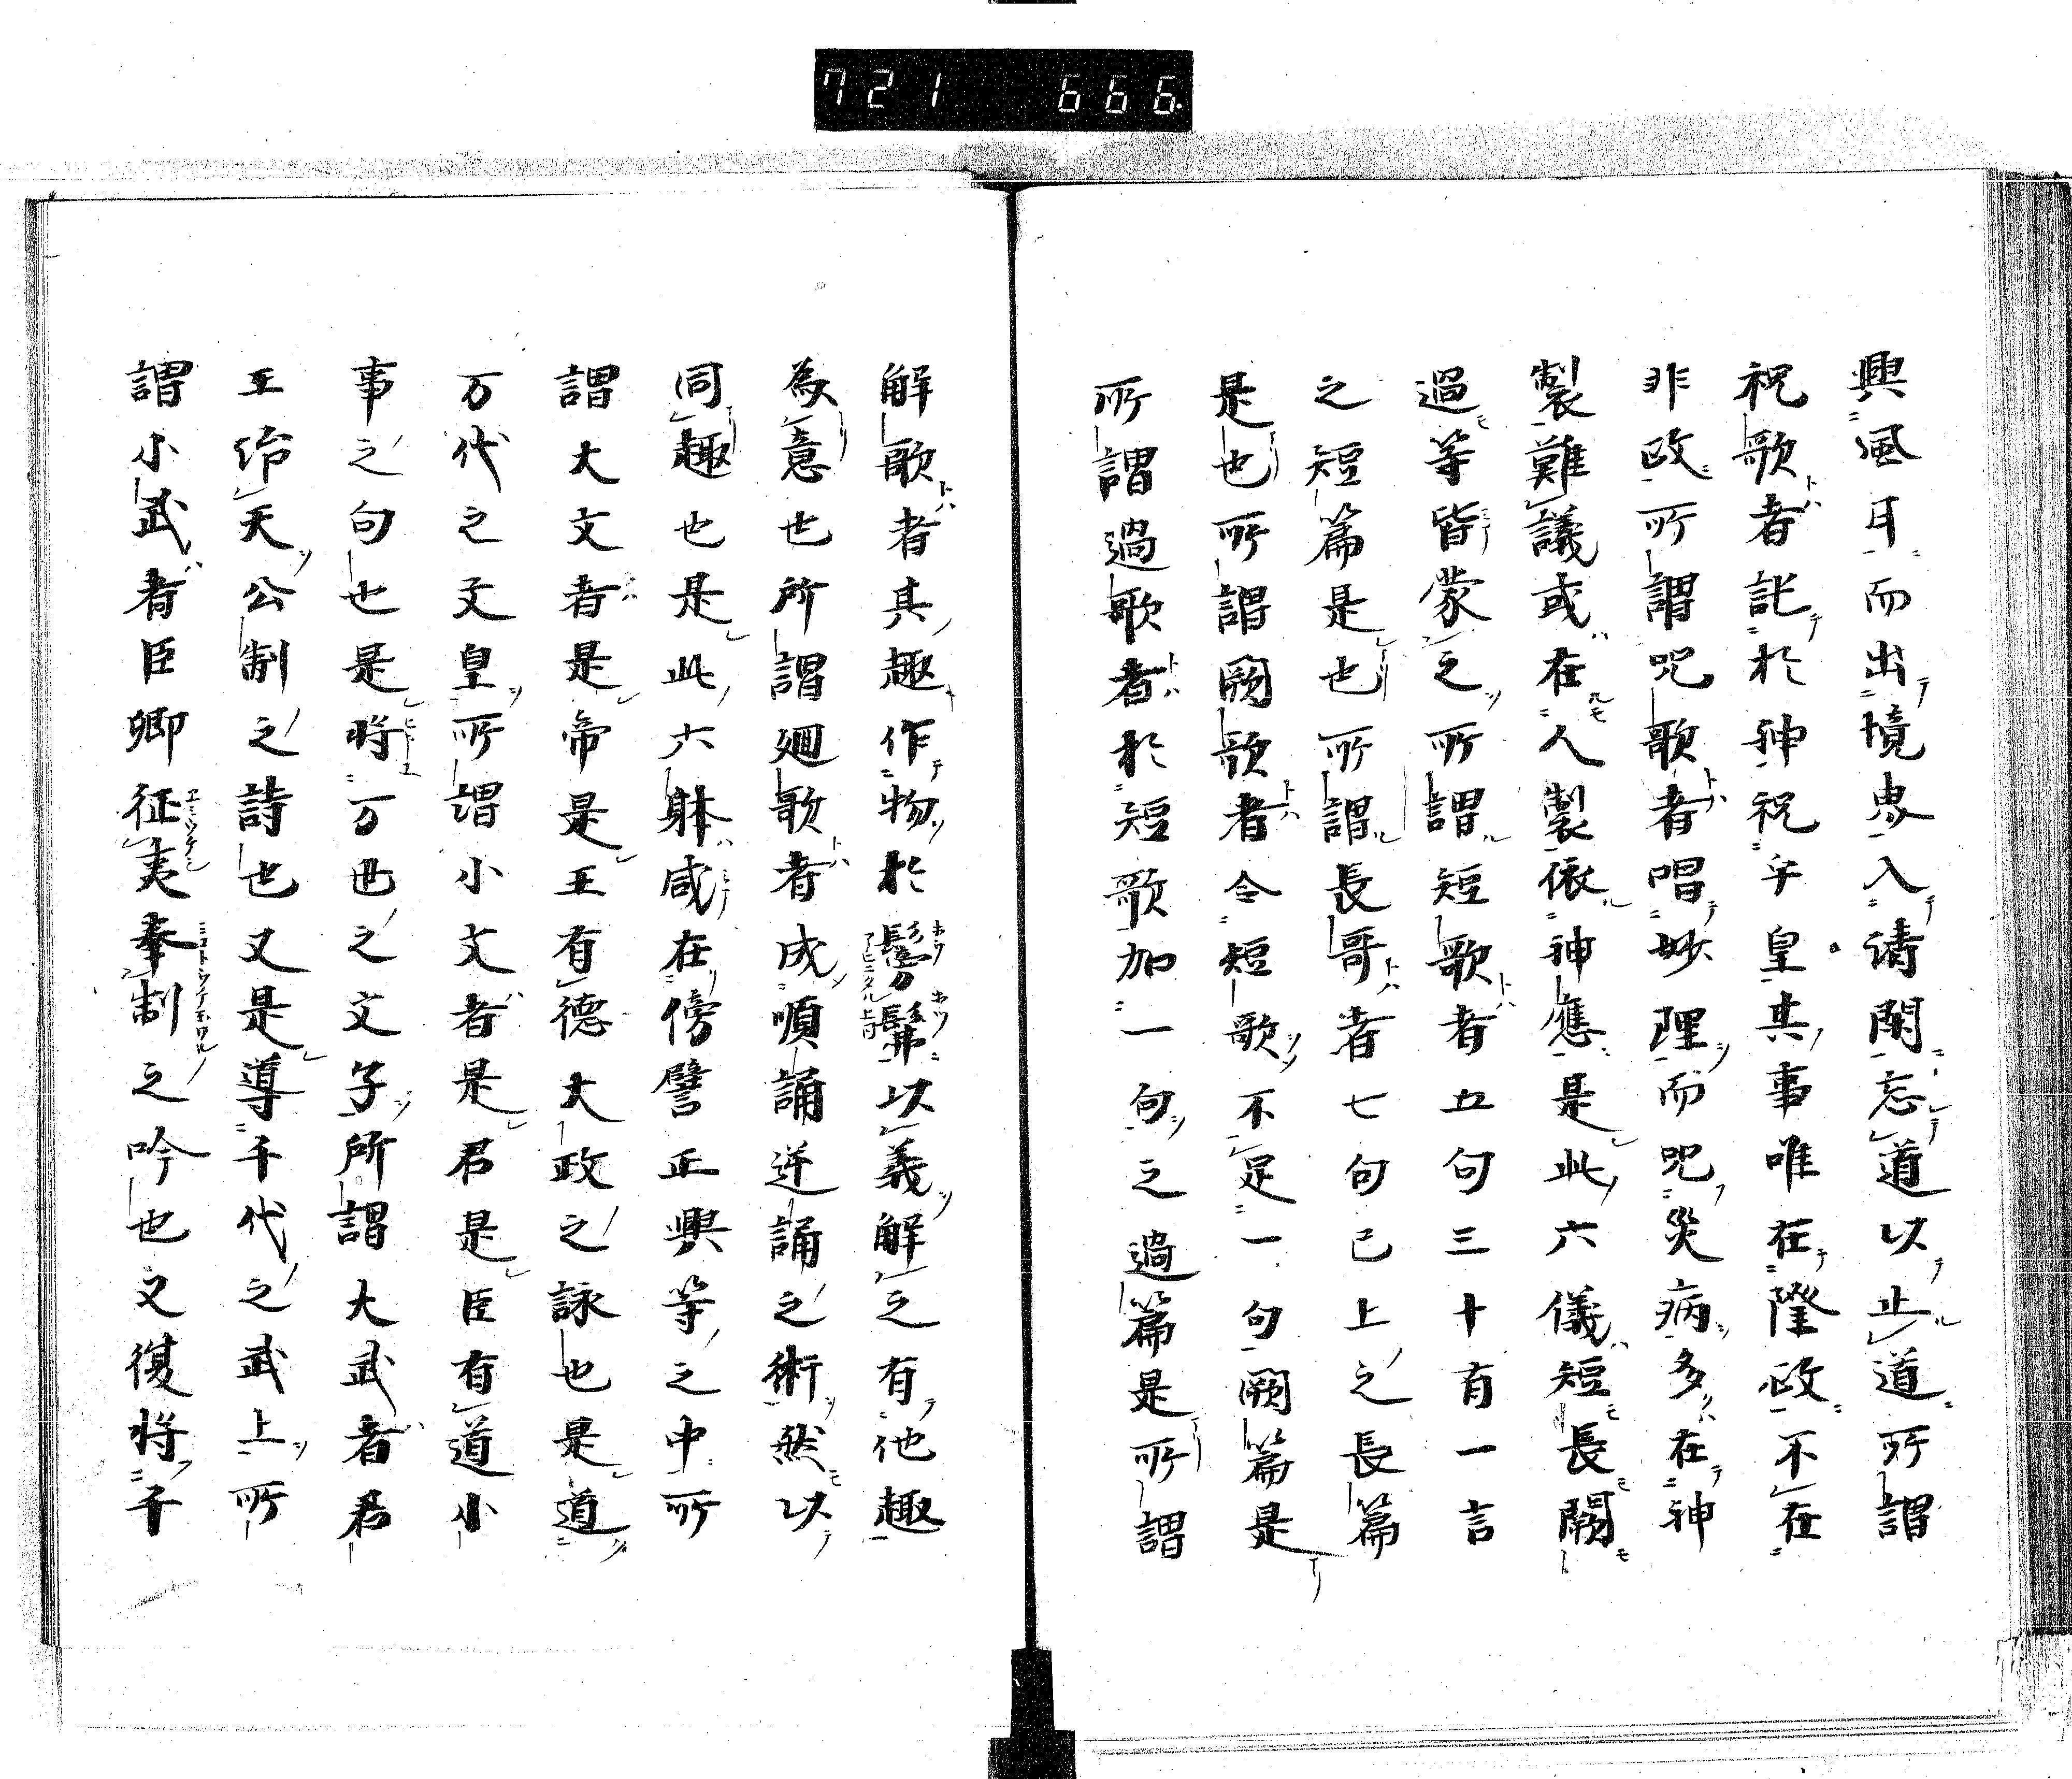 721 666.
興風耳而出境申入請閑忘道以止道所謂
祝歌者託於神祝乎皇其事唯在隆政不在
非政所謂呪歌者唱妙理而呪災病多在神
製難議或在人製依神應是此六儀短長闕
過等皆蒙之所謂短歌者五句三十有一言
之短篇是也所謂長哥者七句已上之長篇
是也所謂闕歌者令短歌不足一句闕篇是
所謂過歌者於短歌加一句之過篇是所謂
解歌者其趣作物於髣髴以義解之有他趣
為意也所謂廻歌者成順誦逆誦之術然以
同趣也是此六躰咸在傍譬正興等之中所
謂大文者是帝是王有德大政之詠也是道
万代之文皇所謂小文者是君是臣有道小
事之句也是將万世之文子所謂大武者君
王給天公制之詩也又是導千代之武上所
謂小武者臣卿征夷奉制之吟也又復将千